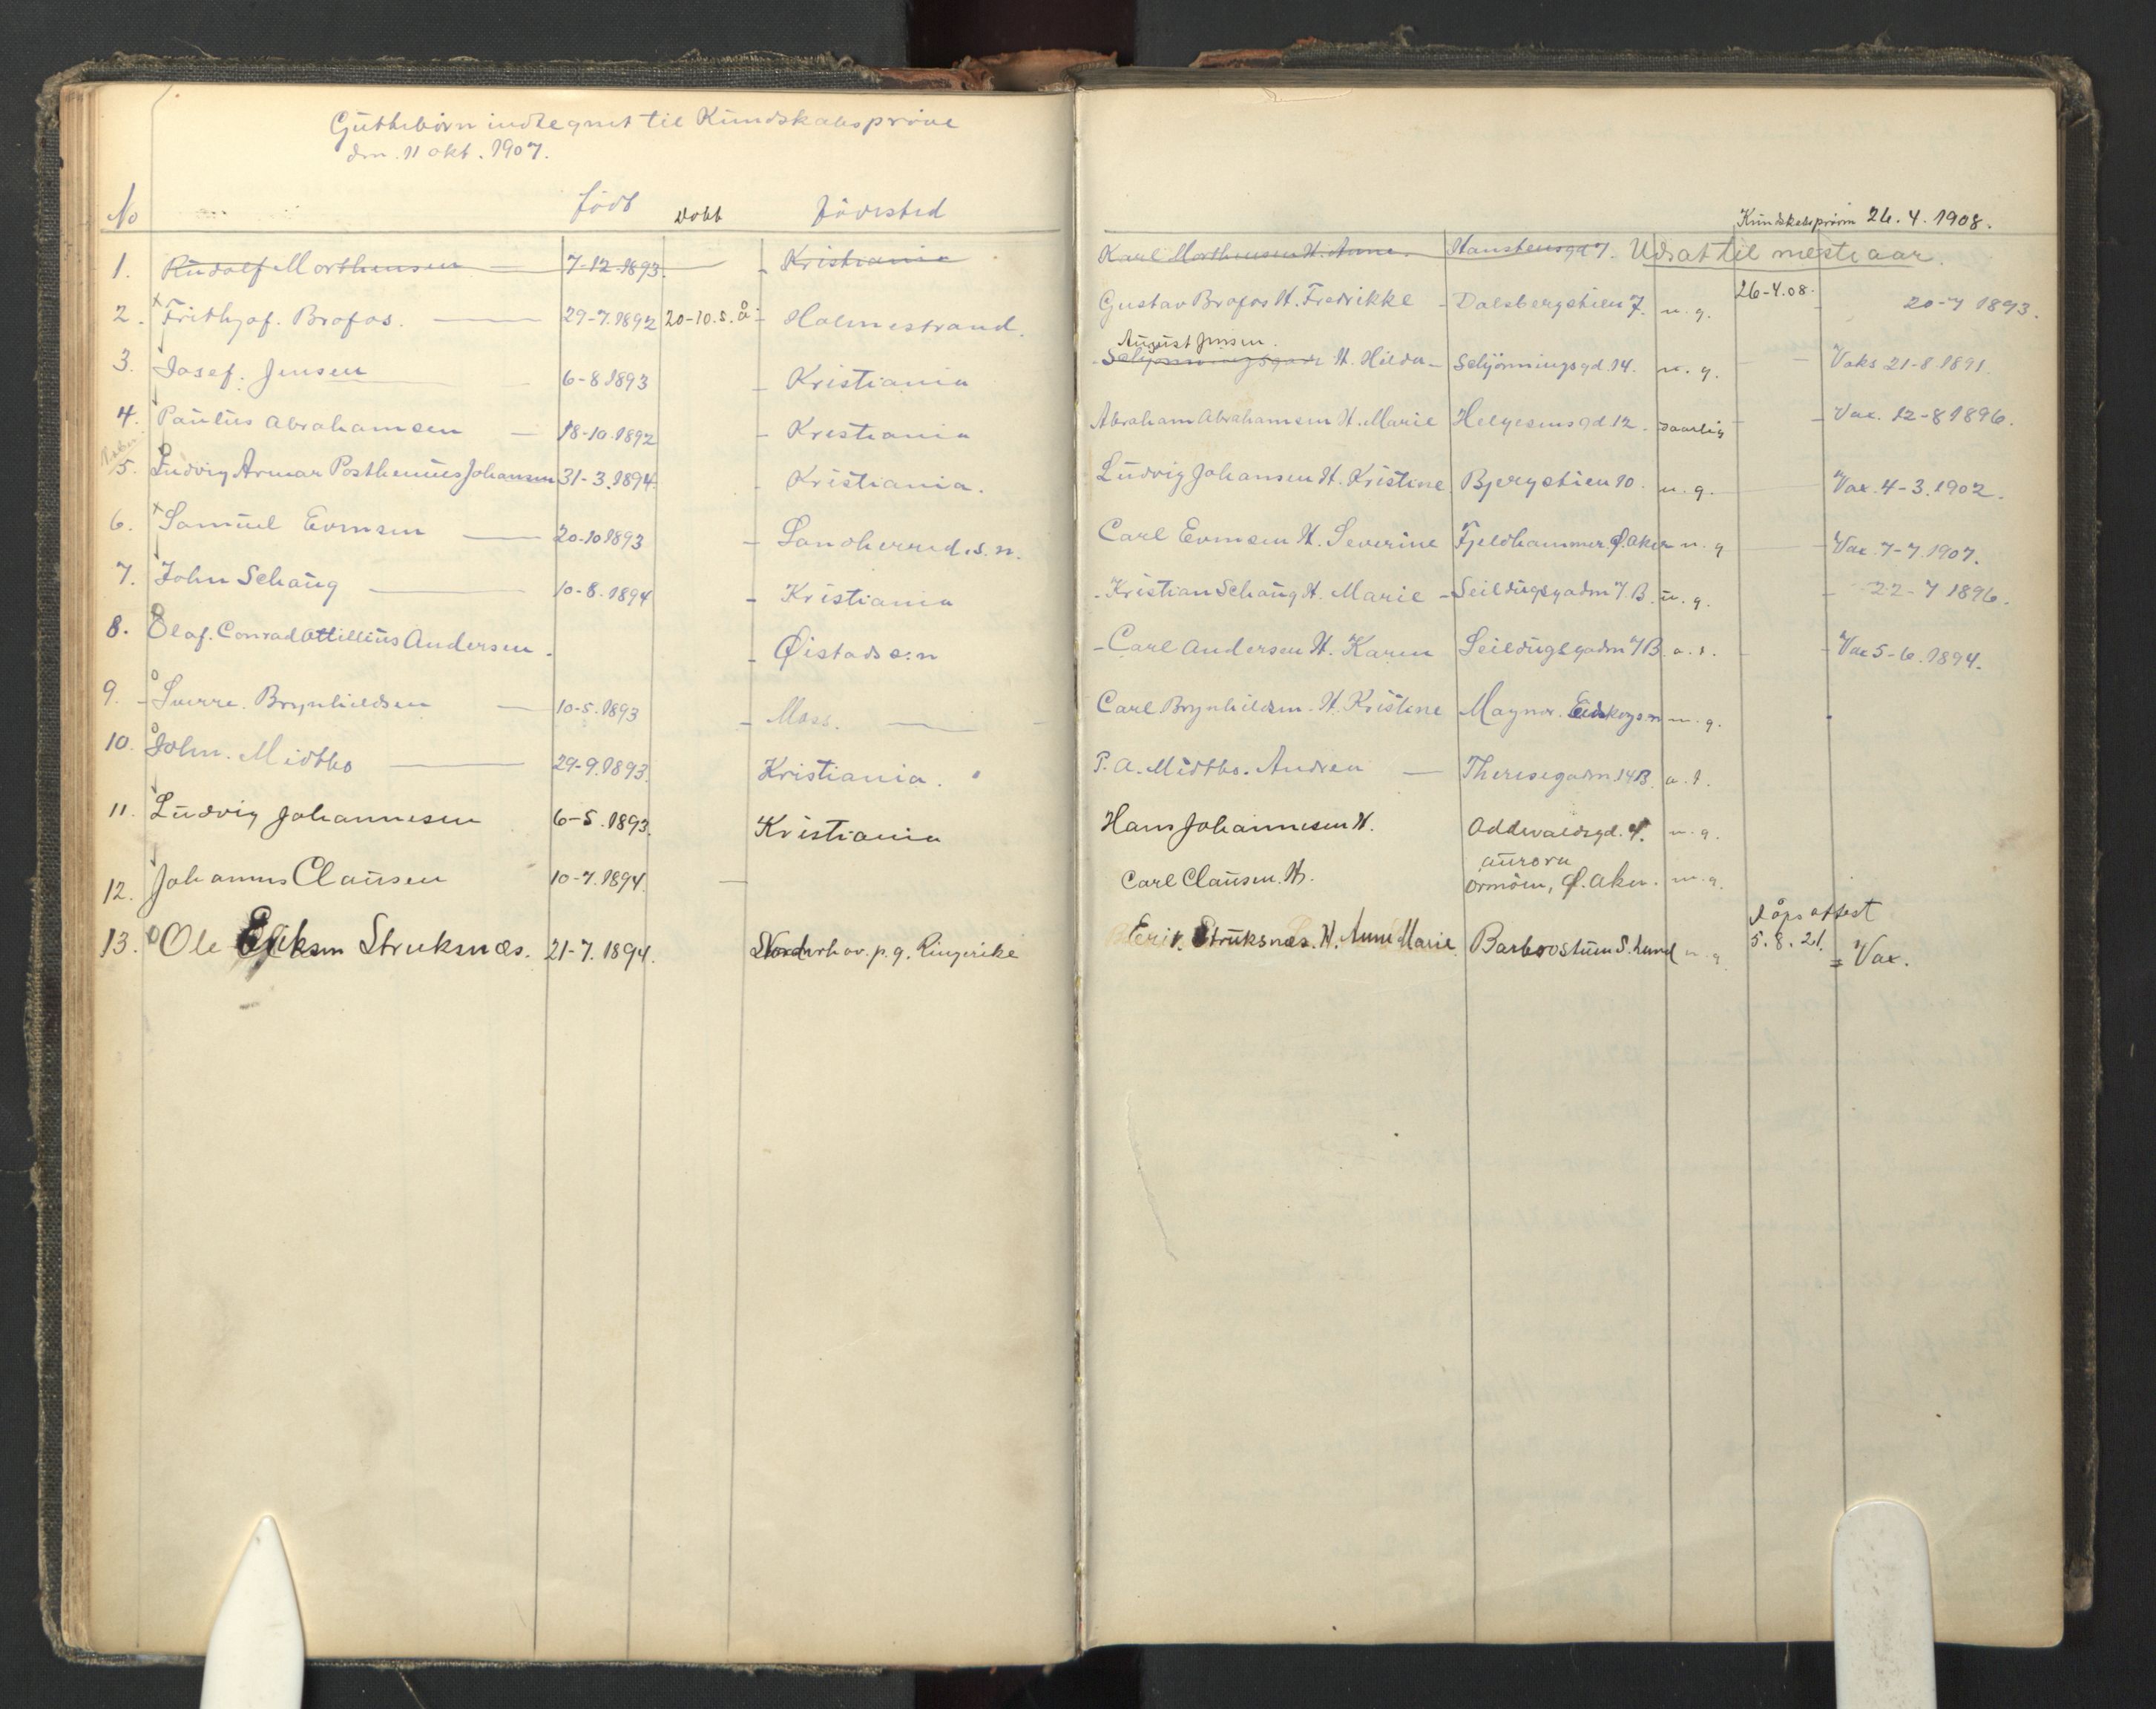 Guttebörn indtegnet til Kundskabspröve
den. 11 okt. 1907.
No födt Döbt Födested
Kundskabspröven 26. 4. 1908.
1. Rudolf Morthensen 7-12-1893. Kristiania Karl Morthensen H. Anna. Hansteensgd 7. Udsat til næste aar.
2. Frithjof. Brofos. 29-7.1892 20-10. s. å. Holmestrand. Gustav Brofos H. Fredrikke Dalsbergstien 7. m. g. 26-4.08. 20-7 1893.
August Jensen.
3. Josef. Jensen 6-8 1893 Kristiania H. Hilda Schjönningsgd. 14. m. g. Vaks 21-8.1891.
4. Paulus Abrahamsen 18-10.1892 Kristiania Abraham Abrahamsen H. Marie Helgesensgd 12. daarlig Vax. 12-8 1896.
5. Ludvig Armar Posthenius Johansen 31-3.1894. Kristiania. Ludvig Johansen H. Kristine Bjergstien 10. m. g. Vax. 4-3.1902.
6. Samuel Evensen 20-10 1893 Sandherred. s. n. Carl Evensen H. Severine Fjeldhammer Ø. Aker m. g Vax. 7-7.1907.
7. John Schaug 10-8.1894 Kristiania Kristian Schaug H. Marie Seildugsgaden 7. B. m. g. 22-7 1896.
8. Olaf. Conrad Attillius Andersen. Öistad s:n Carl Andersen H. Karen Seildugsgaden 7 B. a. t. Vax 5-6. 1894.
9. Sverre. Brynhildsen 10-5.1893 Moss. Carl Brynhildsen. H. Kristine Magnor. Eidskogen m. g.
10. John. Midtbo 29-9.1893. Kristiania. P. A. Midtbo. Andrea Theresegaden 14 B. a. t.
11. Ludvig Johannesen 6-5.1893. Kristiania Hans Johannesen H. Oddvaldsgd. 4. m. g.
Aurora
12. Johannes Clausen 10-7.1894. Carl Clausen. H. Ormöen, Ø. Aker. m. g.
Dåpsattest
13. Ole Eriksen Struksnæs. 21-7. 1894. Norderhov. p. g. Ringerike Erik. Struksnæs. H. Anne Marie Barbrostuen S. Lund m. g. 5. 8. 21. = Vax.